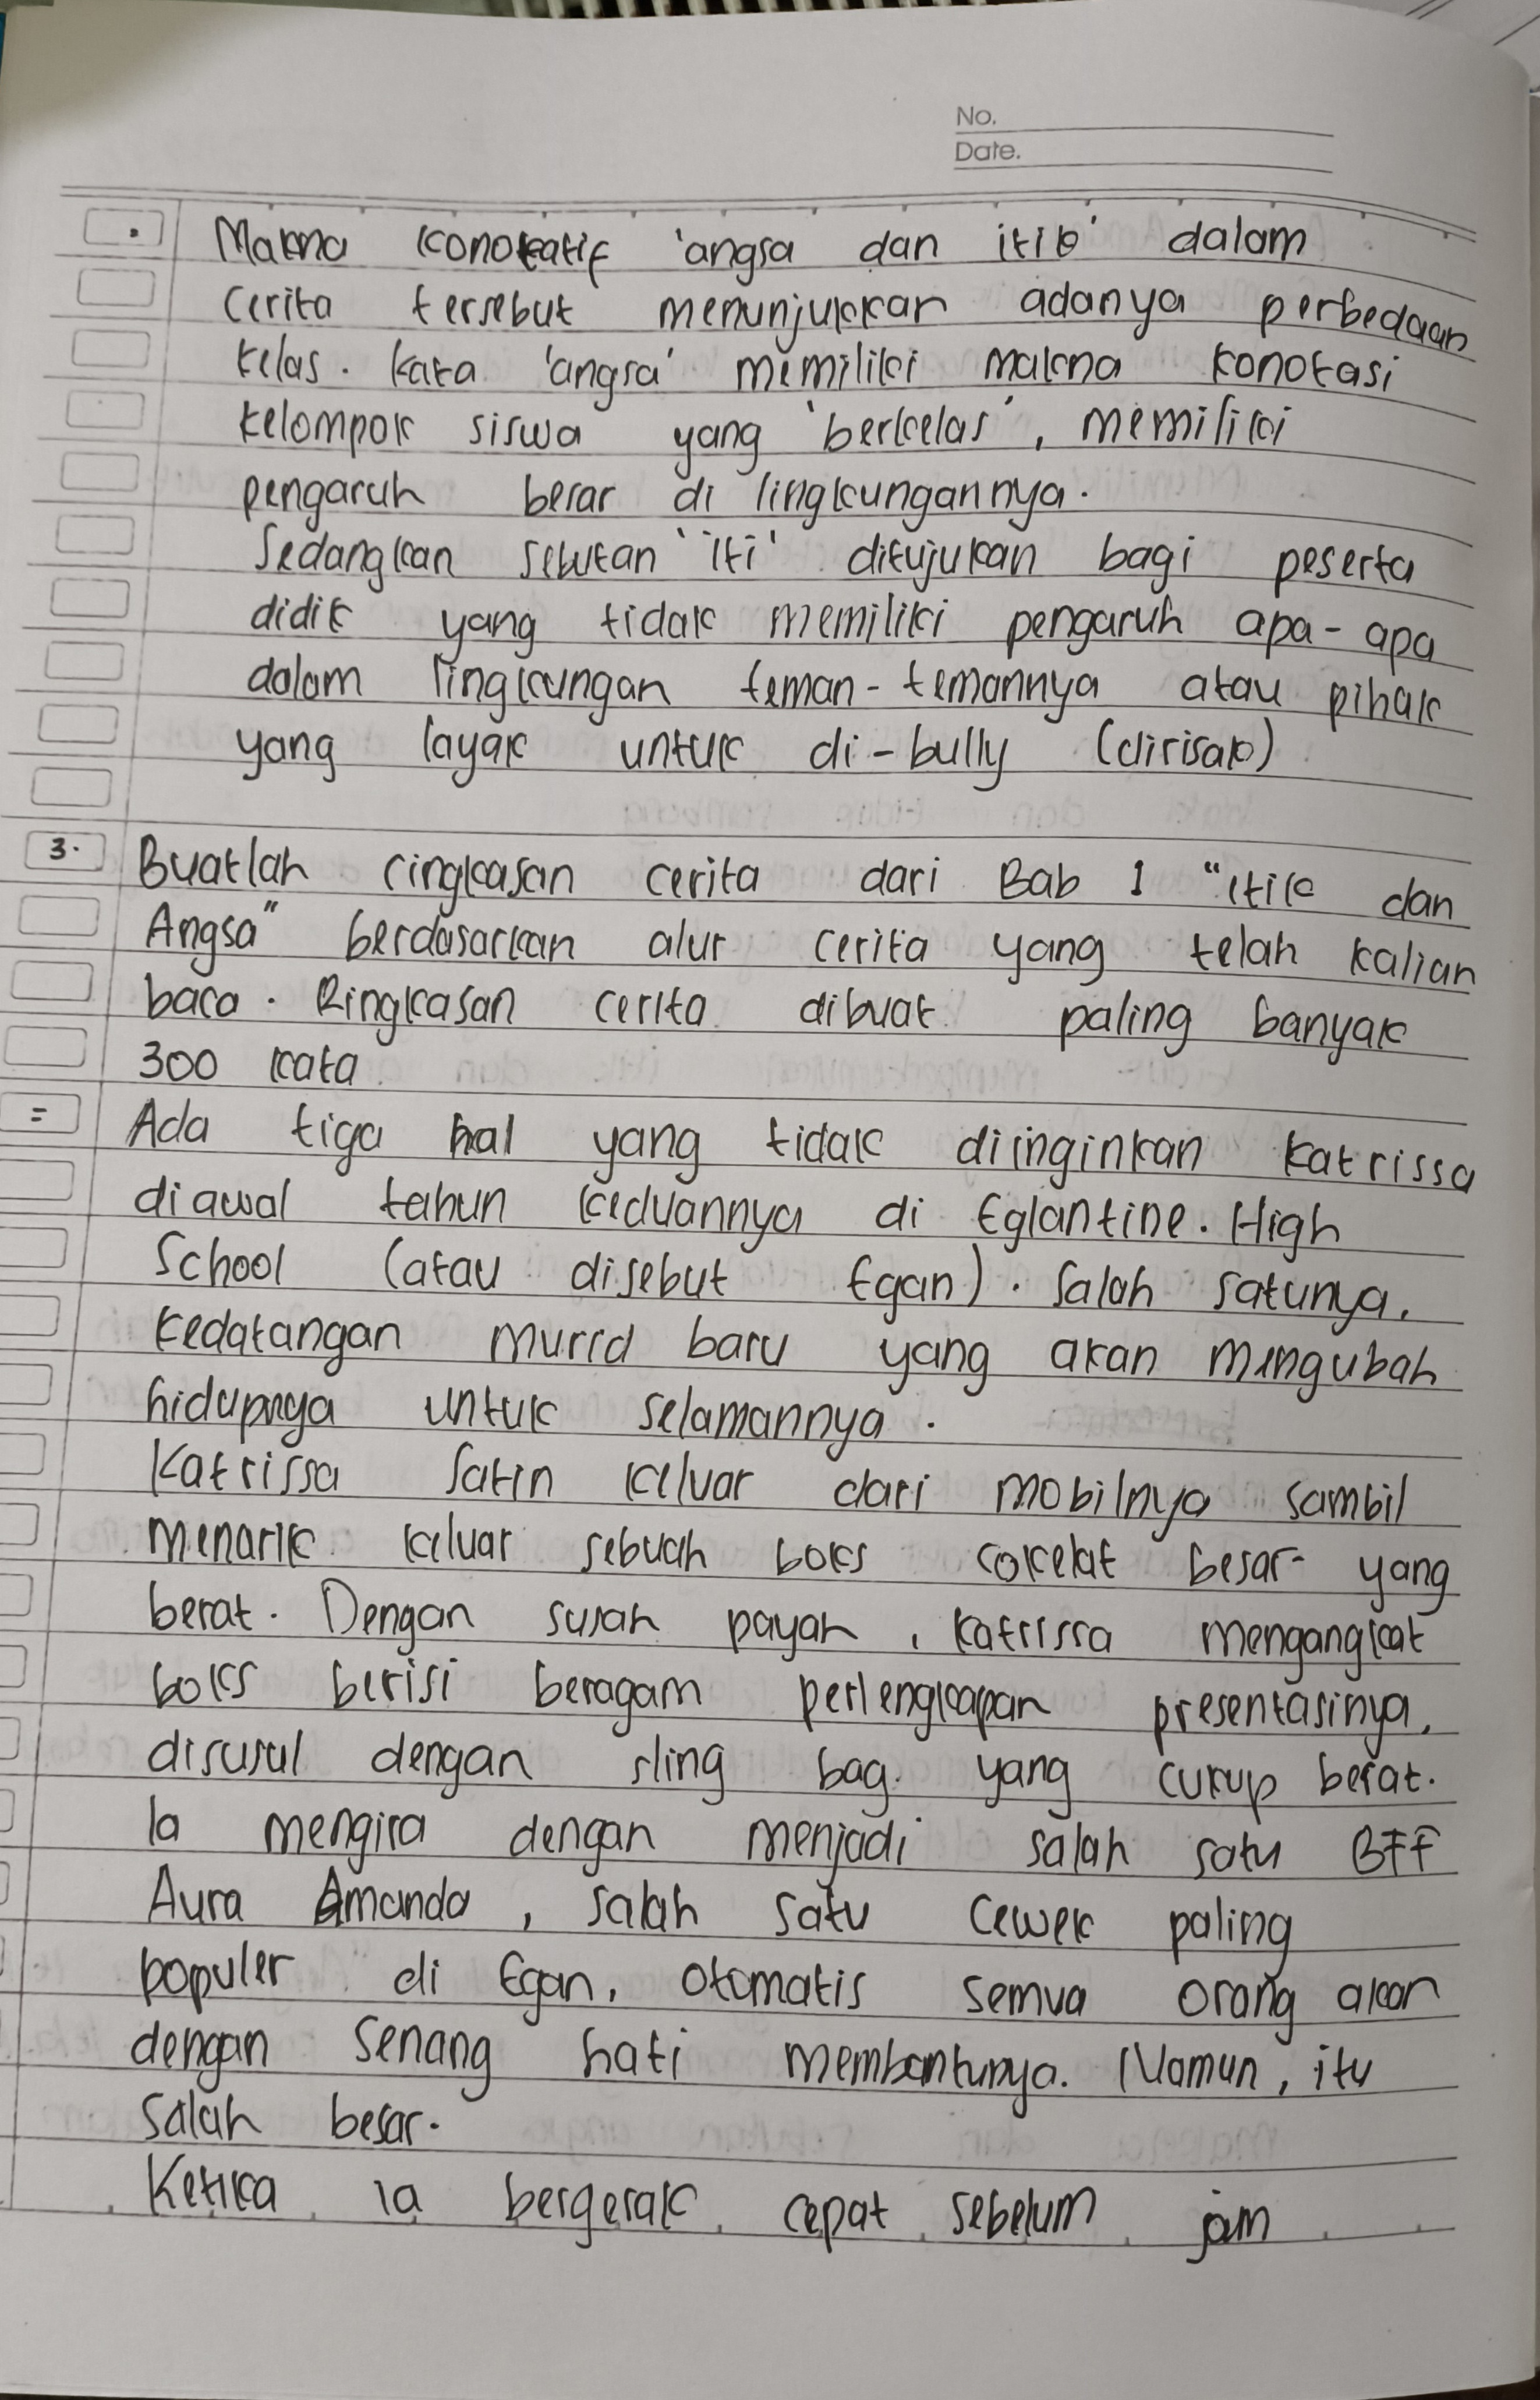 No.
Date.
• Makna konotatif 'angsa dan itik' dalam
cerita tersebut menunjukkan adanya perbedaan
kelas. Kata 'angsa' memiliki makna konotasi
kelompok siswa yang 'berkelas', memiliki
pengaruh besar di lingkungannya.
Sedangkan sebutan 'iti' ditujukan bagi peserta
didik yang tidak memiliki pengaruh apa-apa
dalam lingkungan teman-temannya atau pihak
yang layak untuk di-bully (dirisak)
3. Buatlah ringkasan cerita dari Bab 1 "Itik dan
Angsa" berdasarkan alur cerita yang telah kalian
baca. Ringkasan cerita dibuat paling banyak
300 kata
= Ada tiga hal yang tidak diinginkan Katrissa
diawal tahun keduannya di Eglantine. High
School (atau disebut Egan). Salah satunya,
kedatangan murid baru yang akan mengubah
hidupnya untuk selamannya.
Katrissa Satin keluar dari mobilnya sambil
menarik keluar sebuah boks cokelat besar yang
berat. Dengan susah payah, Katrissa mengangkat
boks berisi beragam perlengkapan presentasinya,
disusul dengan sling bag. yang cukup berat.
Ia mengira dengan menjadi salah satu BFF
Aura Amanda, salah satu cewek paling
populer di Egan, otomatis semua orang akan
dengan senang hati membantunya. Namun, itu
salah besar.
Ketika ia bergerak cepat sebelum jam